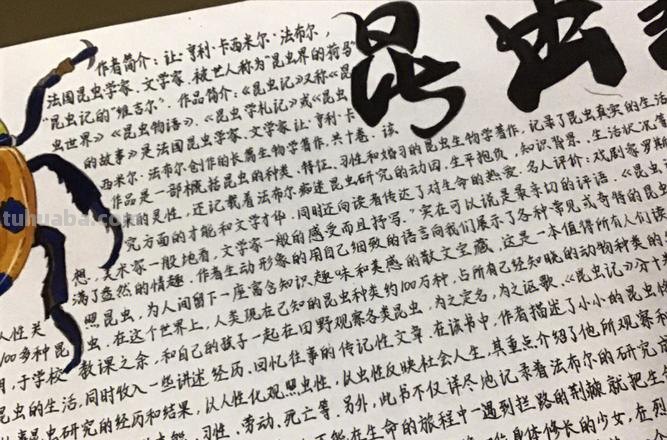 昆虫
作者简介：让·亨利·卡西米尔·法布尔，
法国昆虫学家、文学家，被世人称为"昆虫界的荷马
"昆虫记的"维吉尔"。作品简介：《昆虫记》又称《昆
虫世界》《昆虫物语》、《昆虫学札记》或《昆虫
的故事》是法国昆虫学家、文学家让·亨利·卡
西米尔·法布尔创作的长篇生物学著作，共十卷．该
作品是一部概括昆虫的种类、特征、习性和婚习的昆虫生物学著作，记录了昆虫真实的生活
来的灵性，还记载着法布尔痴迷昆虫研究的动因，生平抱负，知识背景，生活状况等
究方面的才能和文学才华，同时还向读者传达了对生命的热爱．名人评价：戏剧家罗斯
想，美术家一般地看，文学家一般的感受而且抒写．"实在可以说是最亲切的评语．《昆虫
满了盎然的情趣．作者生动形象的用自己细致的语言向我们展示了各种常见或奇特的昆虫
照昆虫，为人间留下一座富含知识、趣味和美感的散文宝藏．这是一本值得所有人们
人性关
100多种昆虫．在这个世界上，人类现在已知的昆虫种类约100万种，占所有已经知晓的动物种类的
于学校教课之余，和自己的孩子一起在田野观察各类昆虫，为之定名，为之讴歌．《昆虫记》分十
昆虫的生活，同时收入一些讲述经历、回忆往事的传记性文章．在该书中，作者描述了小小的昆虫
昆虫研究的经历和结果，以人性化观照虫性，以虫性反映社会人生，其重点介绍了他所观察和
习性、劳动、死亡等．另外，此书不仅详尽地记录着法布尔的研究成
在生命的旅程中一遇到拦路的荆棘就把生
身体修长的少女，在烈
tuhuaba.com